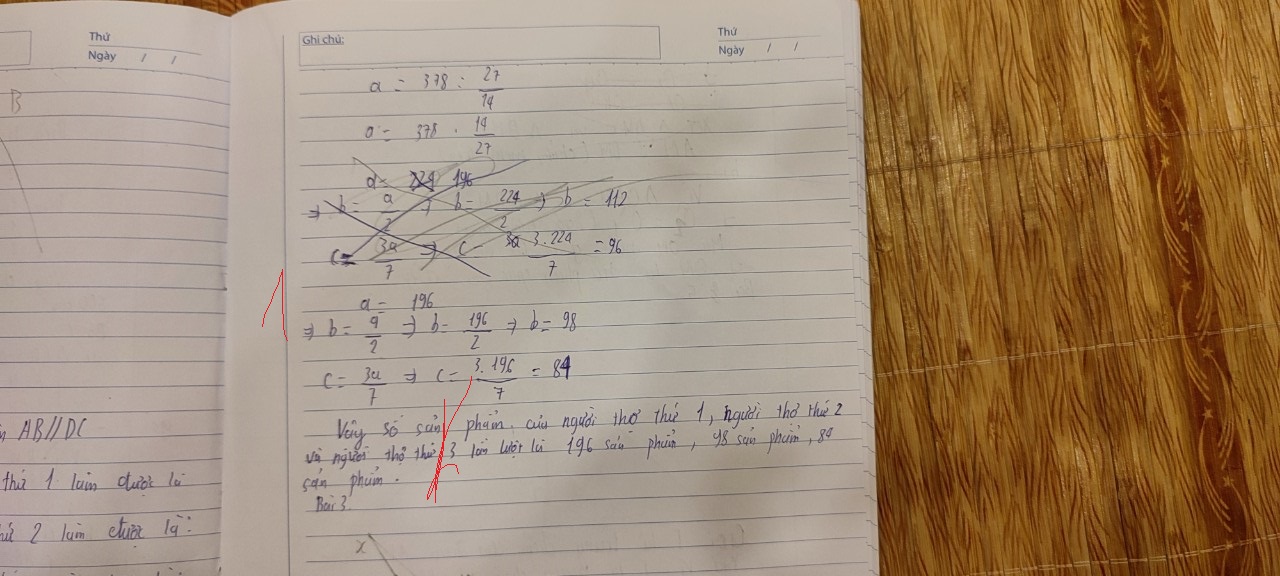 Thứ
Ngày / /
B
n AB//DC
thứ 1 làm được là
hứ 2 làm được là:
Ghi chú:
Thứ
Ngày / /
a = 378 : 27/14
a = 378 . 14/27
a = 224 196
=> b = a/2 => b = 224/2 => b = 112
c = 3a/7 => c = 3a 3.224/7 = 96
1
a = 196
=> b = a/2 => b = 196/2 => b = 98
c = 3a/7 => c = 3.196/7 = 84
Vậy số sản phẩm của người thợ thứ 1, người thợ thứ 2
và người thợ thứ 3 lần lượt là 196 sản phẩm, 98 sản phẩm, 84
sản phẩm.
Bài 3.
x